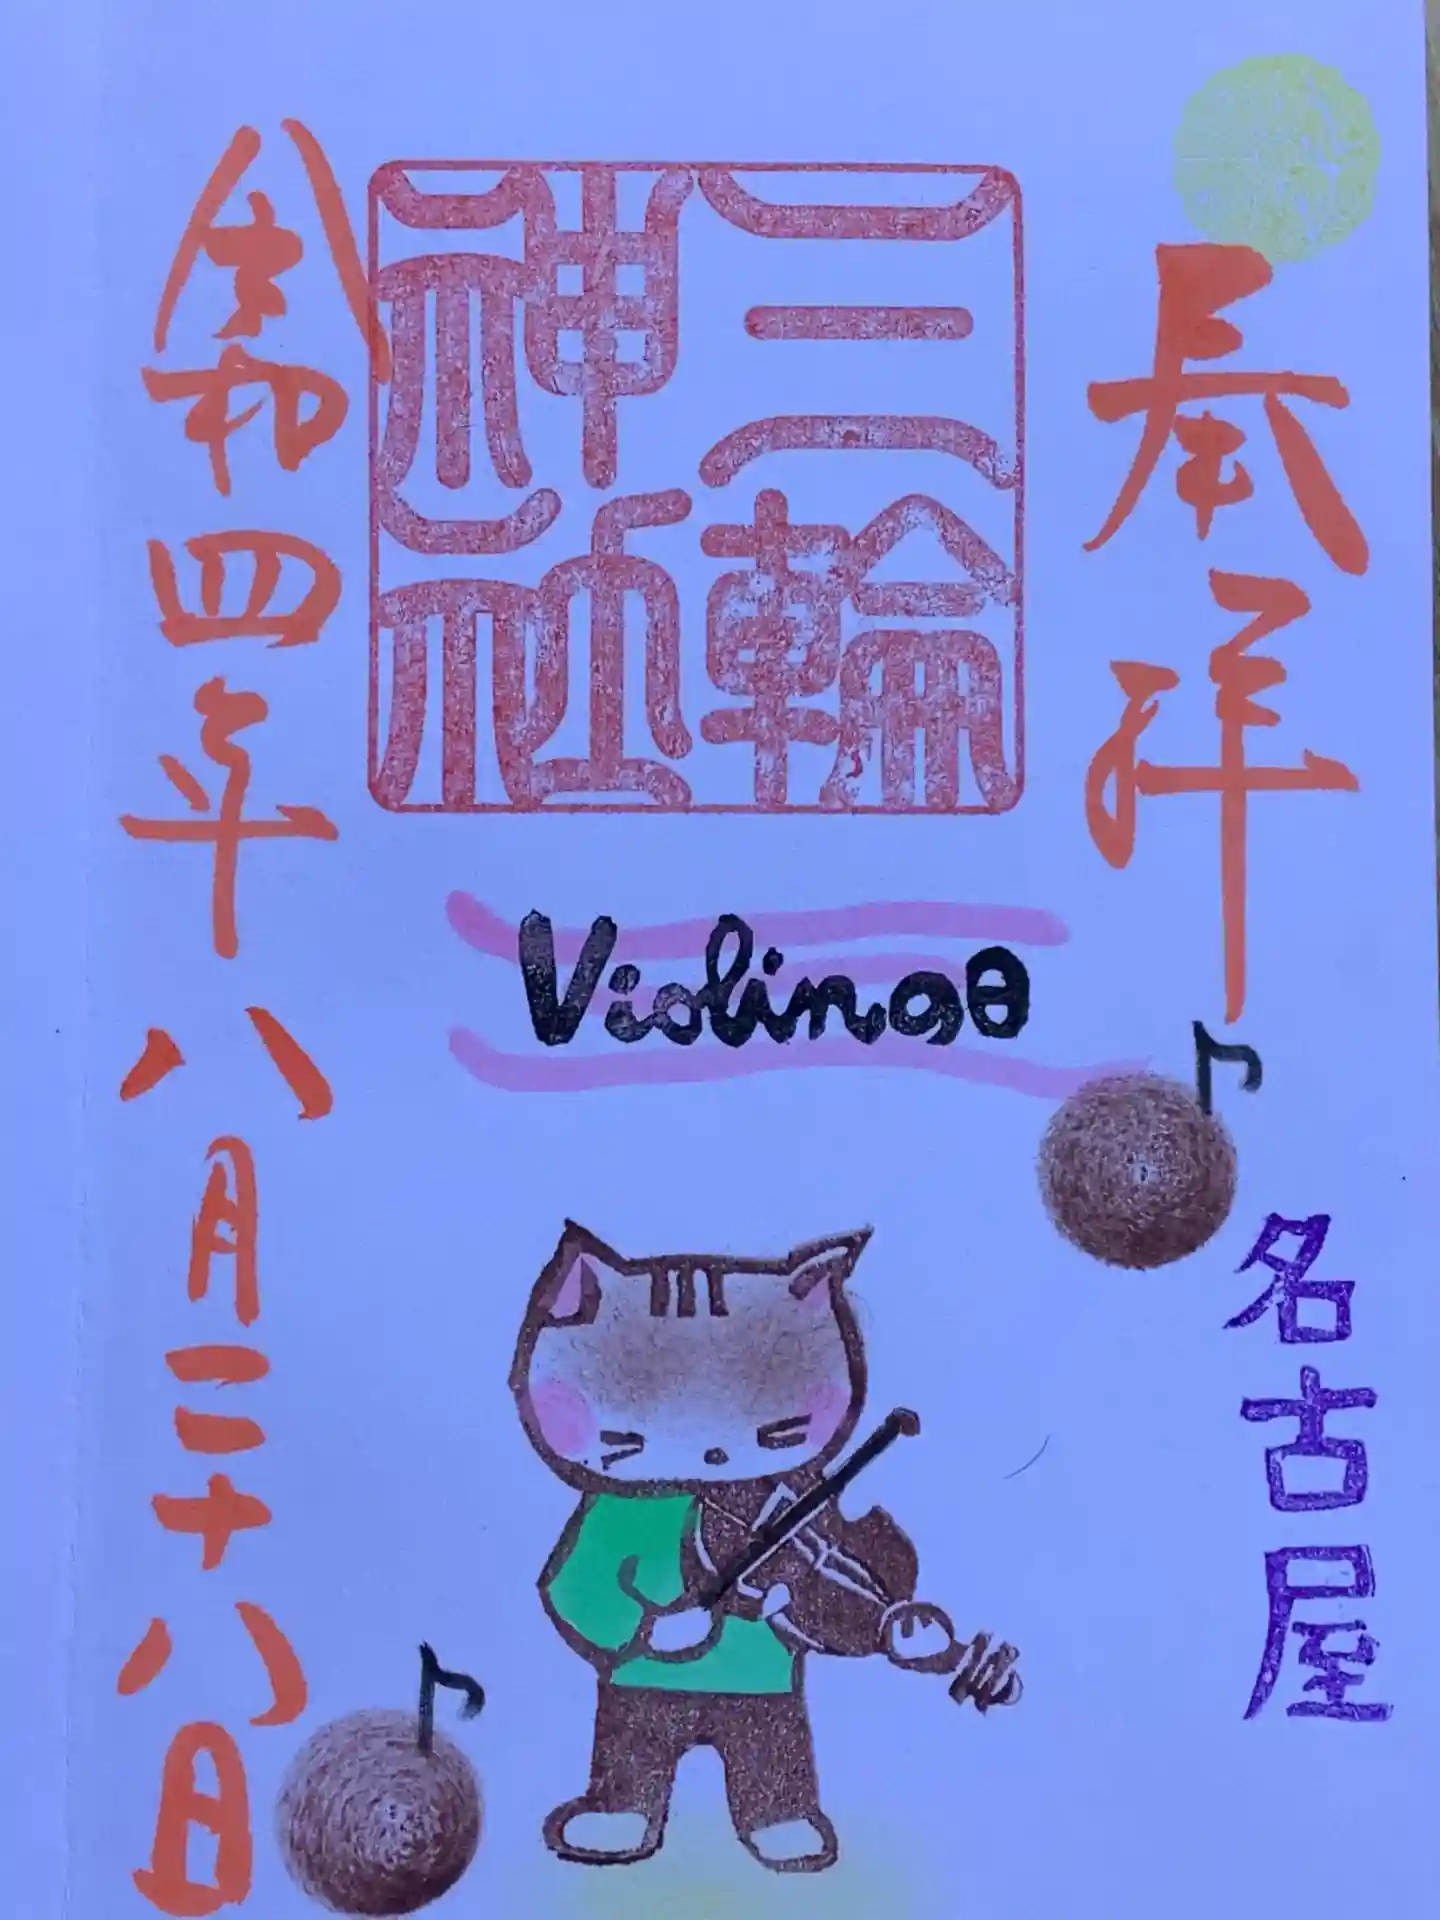 奉拝
名古屋
三輪
神社
Violin
令和四年八月二十八日